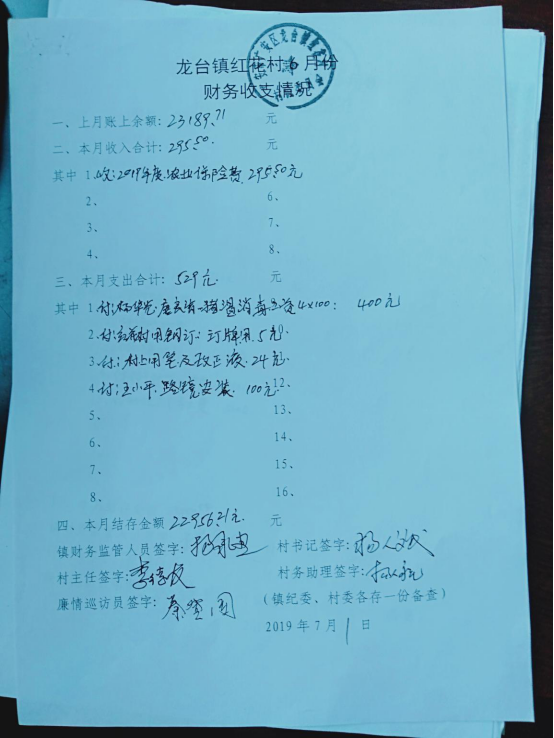 龙台镇红花村6月份
财务收支情况
一、上月账上余额:23189.71 元
二、本月收入合计:295.50. 元
其中 1.收:2019年度农业保险费 295.50元
2、
3、
4、
6、
7、
8、
三、本月支出合计:529元. 元
其中 1.付:杨华 消毒 4×100: 400元
2.付:红花村用钢钉:订牌用.5元.
3.付:村上用笔及改正液.24元.
4.付:王小平.路镜安装.100元.
5、
6、
7、
8、
12、
13、
14、
15、
16、
四、本月结存金额 22956.21元. 元
镇财务监管人员签字:杨 村书记签字:杨
村主任签字:李 村务助理签字:
廉情巡访员签字:秦 (镇纪委、村委各存一份备查)
2019年7月1日